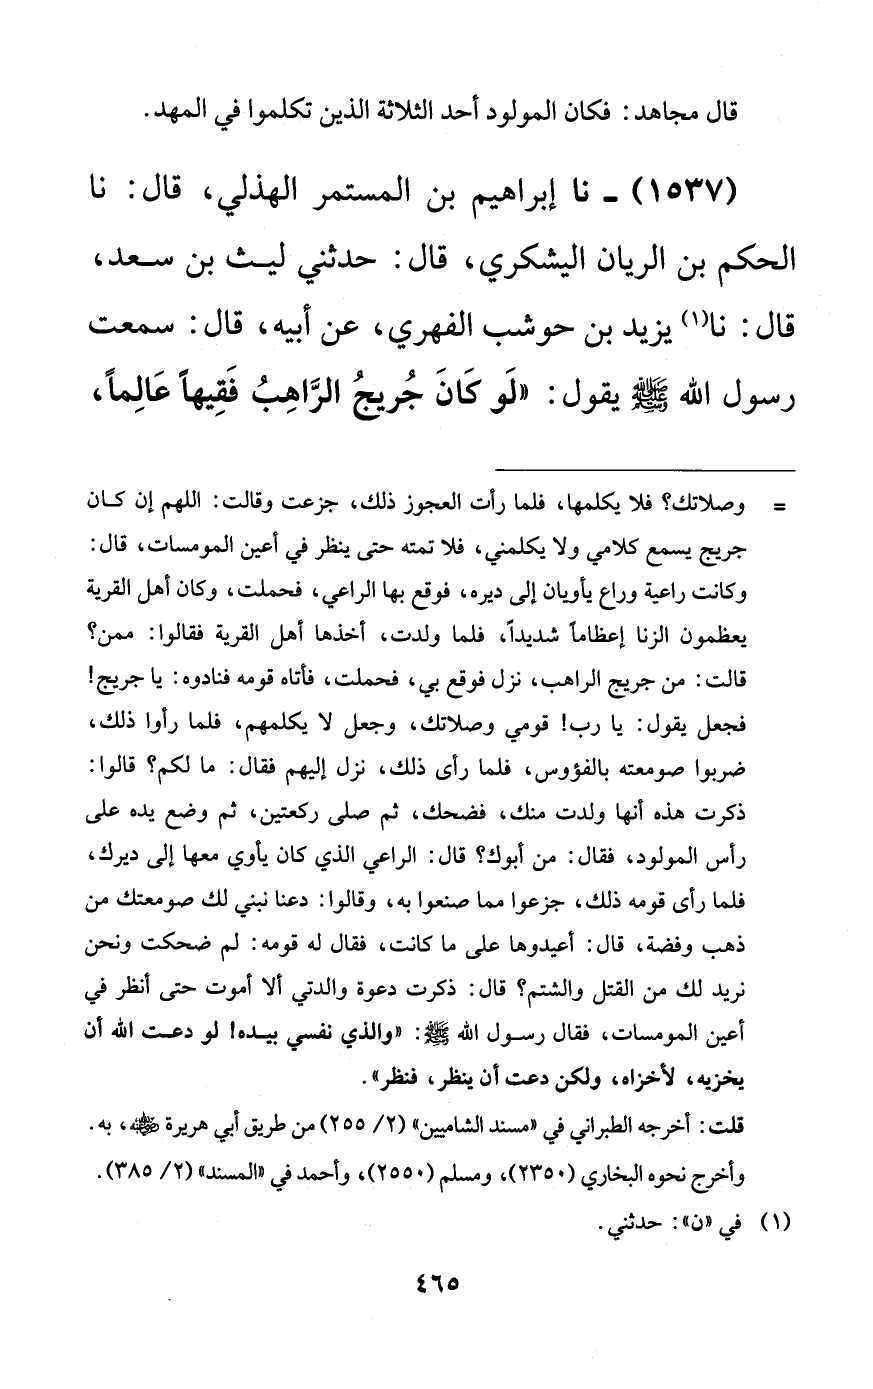 قال مجاهد: فكان المولود أحد الثلاثة الذين تكلموا في المهد.
(١٥٣٧) ـ نا إبراهيم بن المستمر الهذلي، قال: نا
الحكم بن الريان اليشكري، قال: حدثني ليث بن سعد،
قال: نا(١) يزيد بن حوشب الفهري، عن أبيه، قال: سمعت
رسول الله ﷺ يقول: «لَو كَانَ جُريجُ الرَّاهِبُ فَقِيهاً عَالِماً،
= وصلاتك؟ فلا يكلمها، فلما رأت العجوز ذلك، جزعت وقالت: اللهم إن كان
جريج يسمع كلامي ولا يكلمني، فلا تمته حتى ينظر في أعين المومسات، قال:
وكانت راعية وراع يأويان إلى ديره، فوقع بها الراعي، فحملت، وكان أهل القرية
يعظمون الزنا إعظاماً شديداً، فلما ولدت، أخذها أهل القرية فقالوا: ممن؟
قالت: من جريج الراهب، نزل فوقع بي، فحملت، فأتاه قومه فنادوه: يا جريج!
فجعل يقول: يا رب! قومي وصلاتك، وجعل لا يكلمهم، فلما رأوا ذلك،
ضربوا صومعته بالفؤوس، فلما رأى ذلك، نزل إليهم فقال: ما لكم؟ قالوا:
ذكرت هذه أنها ولدت منك، فضحك، ثم صلى ركعتين، ثم وضع يده على
رأس المولود، فقال: من أبوك؟ قال: الراعي الذي كان يأوي معها إلى ديرك،
فلما رأى قومه ذلك، جزعوا مما صنعوا به، وقالوا: دعنا نبني لك صومعتك من
ذهب وفضة، قال: أعيدوها على ما كانت، فقال له قومه: لم ضحكت ونحن
نريد لك من القتل والشتم؟ قال: ذكرت دعوة والدتي ألا أموت حتى أنظر في
أعين المومسات، فقال رسول الله ﷺ: «والذي نفسي بيده! لو دعت الله أن
يخزيه، لأخزاه، ولكن دعت أن ينظر، فنظر».
قلت: أخرجه الطبراني في «مسند الشاميين» (٢/ ٢٥٥) من طريق أبي هريرة رضي الله عنه، به.
وأخرج نحوه البخاري (٢٣٥٠)، ومسلم (٢٥٥٠)، وأحمد في «المسند» (٢/ ٣٨٥).
(١) في «ن»: حدثني.
٤٦٥